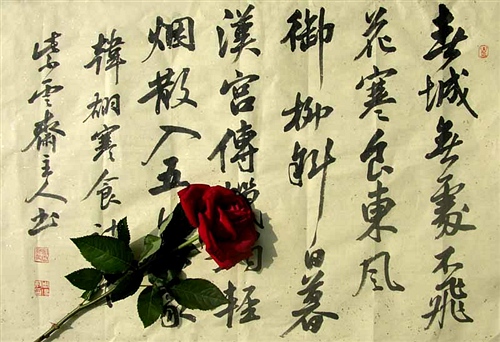 春城無處不飛
花寒食東風
御柳斜日暮
漢宮傳蠟燭輕
烟散入五侯家
韓翃寒食詩
紫雲齋主人书